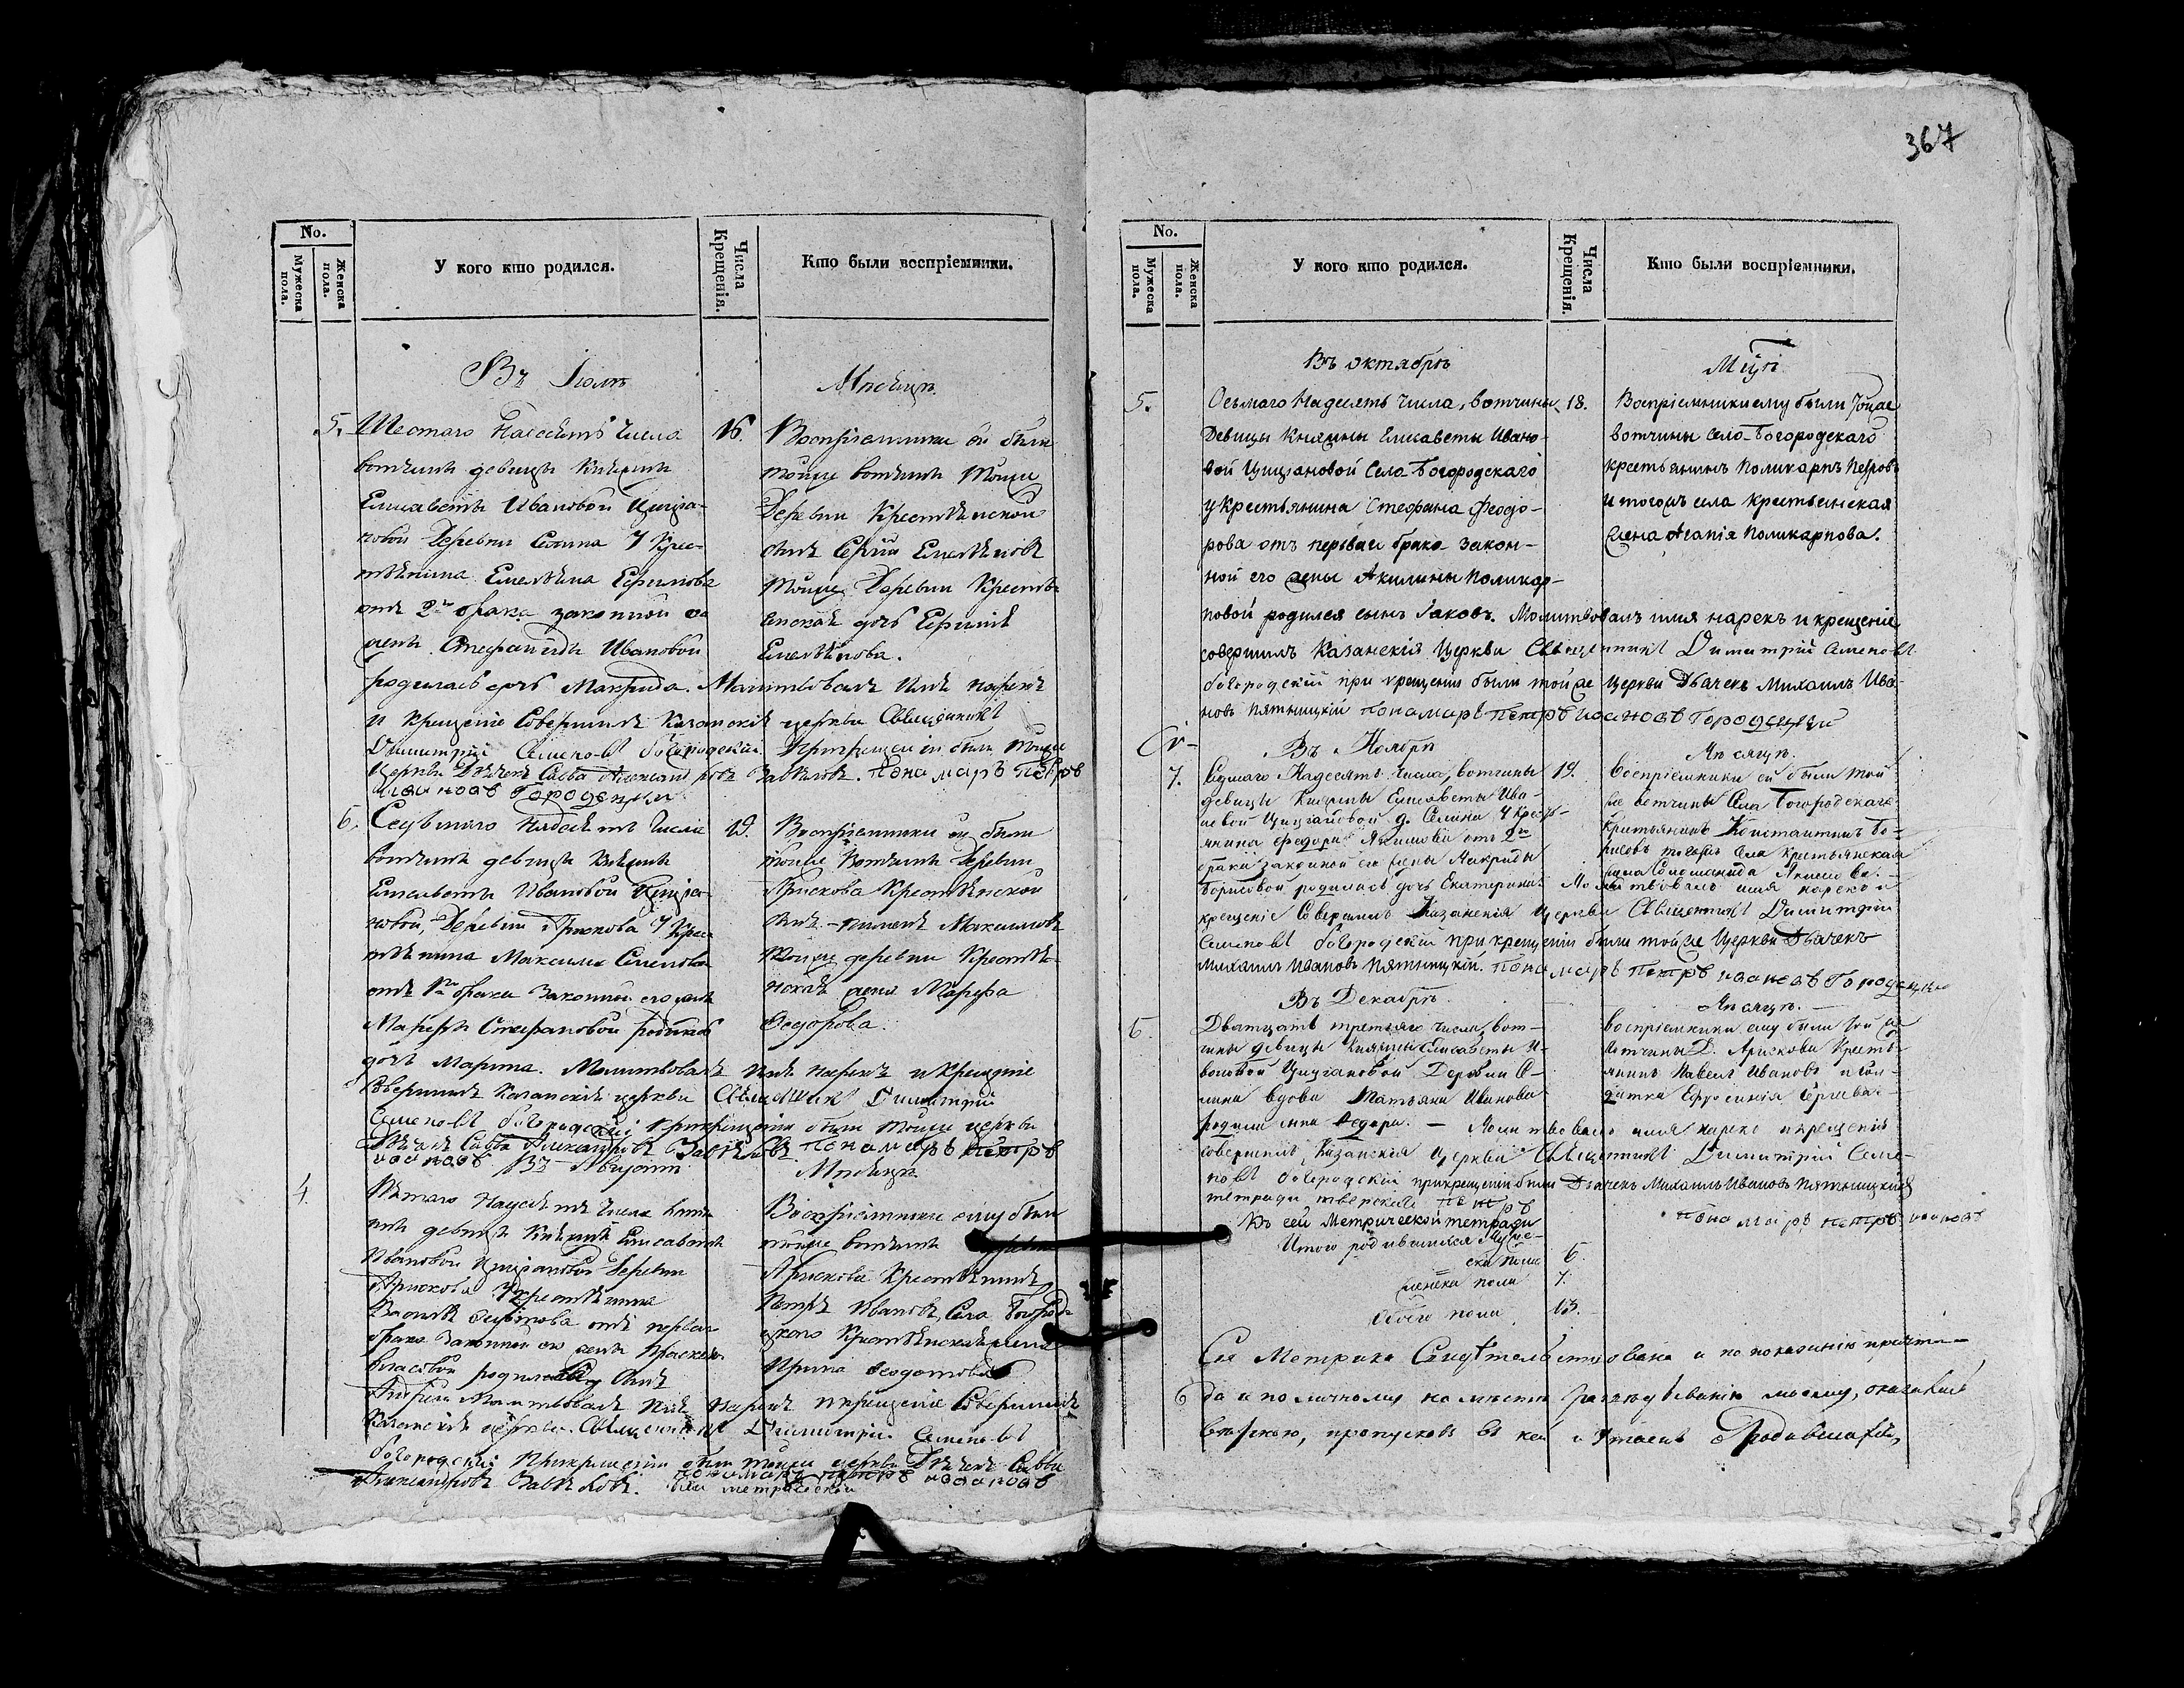 367
No.
Мужеска пола.
Женска пола.
У кого кто родился.
Числа Крещенія.
Кто были воспріемники.
Въ Іюлѣ
Мѣсяцѣ.
5. Шестаго Надесять числа
вотчины девицы Княжны
Елисаветы Ивановой Цицiа-
новой Деревни Селина У Крес-
тьянина Емельяна Ефимова
отъ 2го брака законной его
жены Стефаниды Ивановой
родилась дочь Макрида. Молитвовалъ имя нарекъ
и крещеніе Совершилъ Казанскія церкви Священникъ
Димитрій Семеновъ богородскій При крещеніи были тойже
Церкви Дьячекъ Савва Александровъ Завьяловъ. Пономарь Петръ
Ивановъ Городецкій
16.
Воспріемники ей были
тойже вотчины тойже
Деревни Крестьянской
сынъ Сергiй Емельяновъ
тойже Деревни Кресть-
янская дочь Ефимія
Емельянова.
6. Седьмаго Надесять числа
вотчины девицы Княжны
Елисаветы Ивановой Цицiа-
новой, Деревни Арискова У Крес-
тьянина Максима Семенова
отъ 1го брака Законной его жены
Марфы Стефановой родилась
дочь Марина. Молитвовалъ имя нарекъ и Крещеніе
Совершилъ Казанскія церкви Священникъ Димитрій
Семеновъ богородскій при крещеніи были тойже церкви
Дьячекъ Савва Александровъ Завьяловъ. Пономарь Петръ
Ивановъ
19.
Воспріемники ей были
тойже Вотчины Деревни
Арискова Крестьянской
сынъ Максимовъ
тойже деревни Крестья-
нская жена Марфа
Федорова.
Въ Августѣ
Мѣсяцѣ
4. Пятаго Надесять числа вотчи
ны девицы Княжны Елисаветы
Ивановой Цицiановой Деревни
Арискова У крестьянина
отъ перваго
брака Законной его жены
Власовой родился сынъ
Молитвовалъ имя Нарекъ и крещеніе Совершилъ
Казанскія церкви Священникъ Димитрій Семеновъ
богородскій При крещеніи были тойже церкви Дьячекъ Савва
Александровъ Завьяловъ. Пономарь Петръ Ивановъ
сей метрической
Воспріемники ему были
тойже вотчины Деревни
Арискова Крестьянинъ
Петръ Ивановъ, Села Богород-
скаго Крестьянская жена
Ирина Феодотова
No.
Мужеска пола.
Женска пола.
У кого кто родился.
Числа Крещенія.
Кто были воспріемники.
Въ октябрѣ
Мцѣ
5. Осьмаго Надесять числа, вотчины
Девицы Княжны Елисаветы Ивано-
вой Циціановой Села Богородскаго
у Крестьянина Стефана Феодо-
рова отъ перваго брака закон-
ной его жены Акилины Поликар-
повой родился сынъ Іаковъ. Молитвовалъ имя нарекъ и крещеніе
совершилъ Казанскія Церкви Священникъ Димитрій Семеновъ
богородскій при крещеніи были тойже Церкви Дьячекъ Михаилъ Ива-
новъ Пятницкій Пономарь Петръ Ивановъ Городецкій
18.
Воспріемники ему были тойже
вотчины село Богородскаго
крестьянинъ Поликарпъ Петровъ
и тогожъ села крестьянская
жена Агапія Поликарпова.
Въ Ноябрѣ
Мѣсяцѣ.
7. Седмаго Надесять числа, вотчины
девицы Княжны Елисаветы Ива-
новой Циціановой д. Селина У Кресть-
янина Федора Якимова отъ 2го
брака законной его жены Макриды
Борисовой родилась дочь Екатерина. Молитвовалъ имя нарекъ и
крещеніе Совершилъ Казанскія Церкви Священникъ Димитрій
Семеновъ богородскій при крещеніи были тойже Церкви Дьячекъ
Михаилъ Ивановъ Пятницкій. Пономарь Петръ Ивановъ Городецкій
19.
Воспріемники ей были той
же вотчины Села Богородскаго
Крестьянинъ Константинъ Бо-
рисовъ тогожъ Села Крестьянская
жена Соломанида Якимова.
Въ Декабрѣ
Мѣсяцѣ.
6 Дватцать третьяго числа, вот-
чины девицы Княжны Елисаветы И-
вановой Циціановой Деревни Се-
лина вдова Татьяна Иванова
родила сына Федора. — Молитвовалъ имя нарекъ и крещеніе
совершилъ, Казанскія Церкви Священникъ Димитрій Семе-
новъ богородскій при крещеніи были Дьячекъ Михаилъ Ивановъ Пятницкій
Пономарь Петръ Ивановъ
Воспріемники ему были той же
вотчины Д. Арискова Кресть-
янинъ Павелъ Ивановъ и Сол-
датка Ефросинія Сергѣева
Въ сей Метрической тетради
Итого родившихся Муже-
ска пола 6.
Женска пола 7.
Обоего пола 13.
Сія Метрика Свидѣтельствована и по показанію причта
да и по личному на мѣстѣ разслѣдованію моему, оказалась
вѣрною, пропусковъ въ ней и Утаекъ о Родившихся,